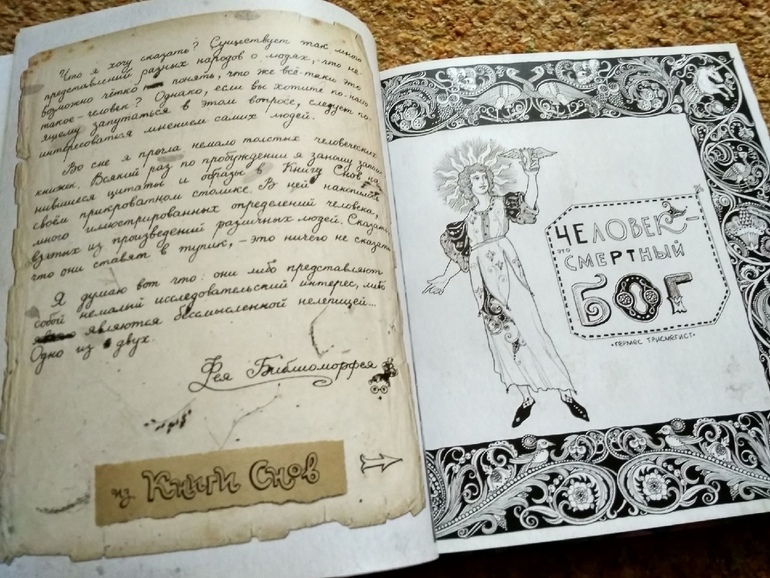 Что я хочу сказать? Существует так много
представлений разных народов о людях, что не-
возможно чётко понять, что же всё-таки это
такое - человек? Однако, если вы хотите по-насто-
ящему запутаться в этом вопросе, следует по-
интересоваться мнением самих людей.
Во сне я прогла немало толстых человеческих
книжек. Всякий раз по пробуждении я заношу запом-
нившиеся цитаты и образы в Книгу Снов на
своём прикроватном столике. В ней накопилось
много иллюстрированных определений человека,
взятых из произведений различных людей. Сказать,
что они ставят в тупик, - это ничего не сказать.
Я думаю вот что: они либо представляют
собой немалый исследовательский интерес, либо
являются бессмысленной нелепицей...
Одно из двух.
Фея Библиоморфея
из Книги Снов
ЧЕЛОВЕК -
ЭТО СМЕРТНЫЙ
БОГ
• ГЕРМЕС ТРИСМЕГИСТ •